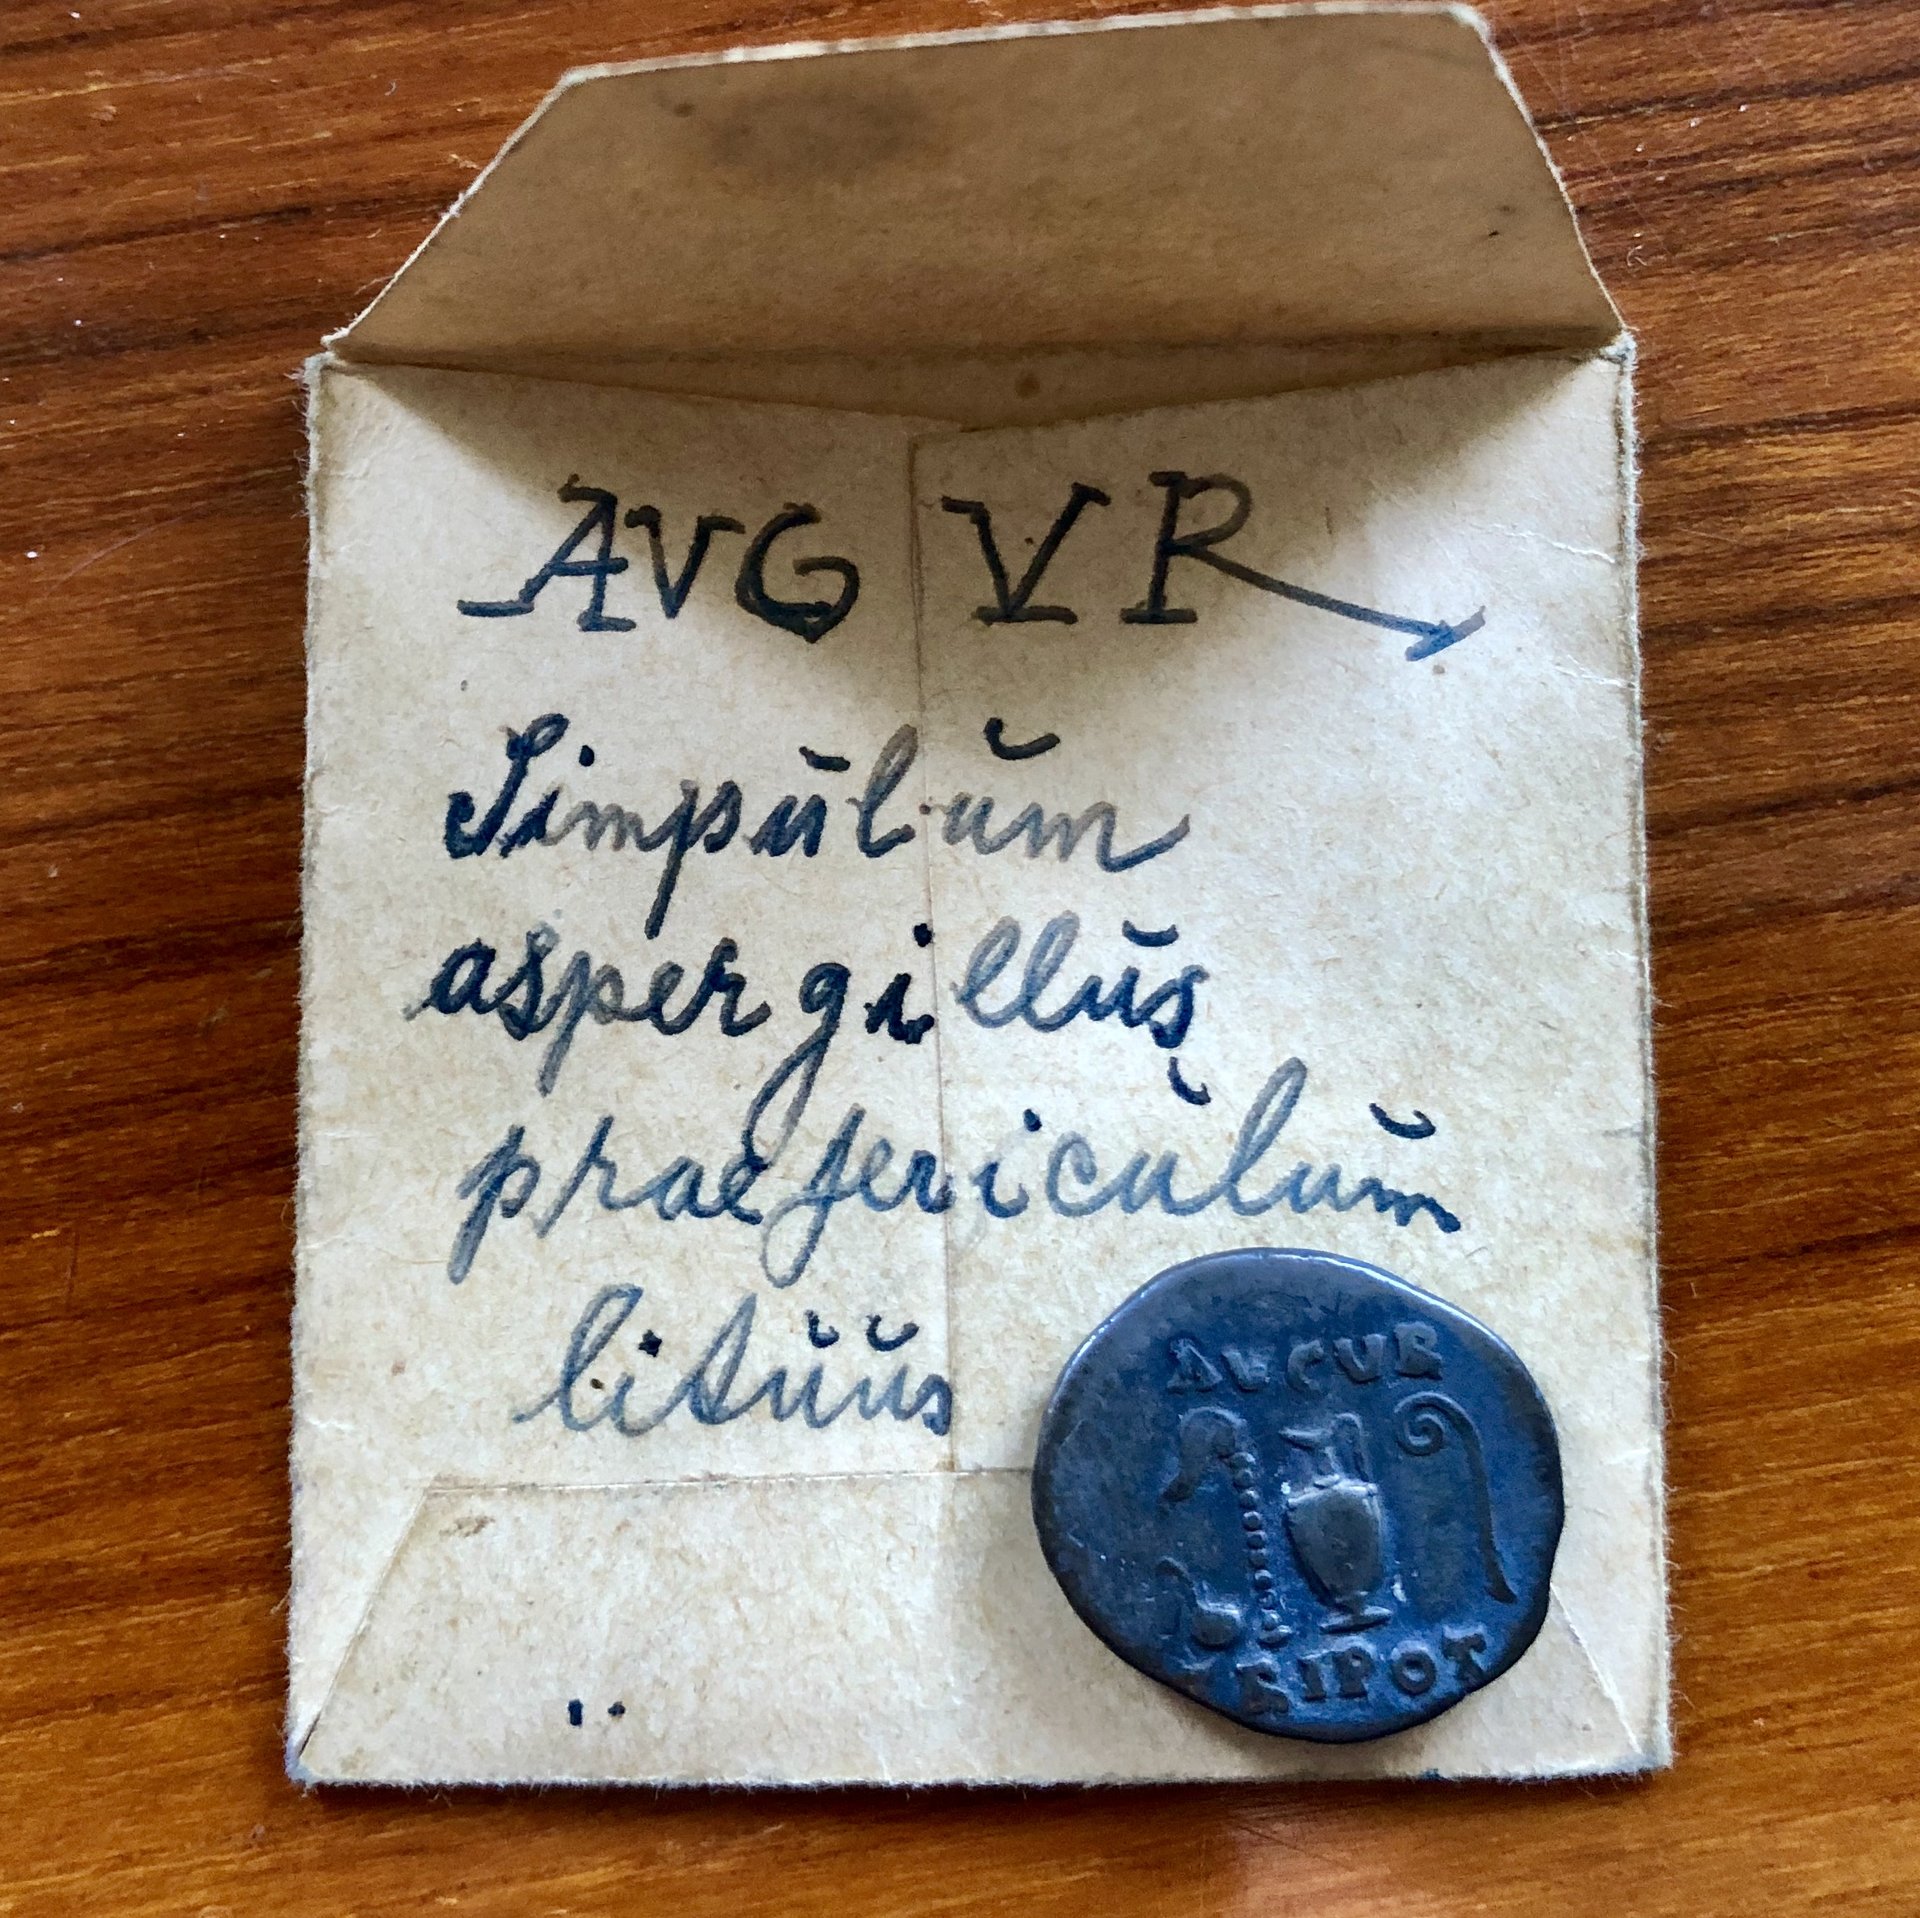 AVG VR
Simpūlŭm
aspergillŭs
praefericŭlŭm
litŭŭs
AVGVR
TRI POT